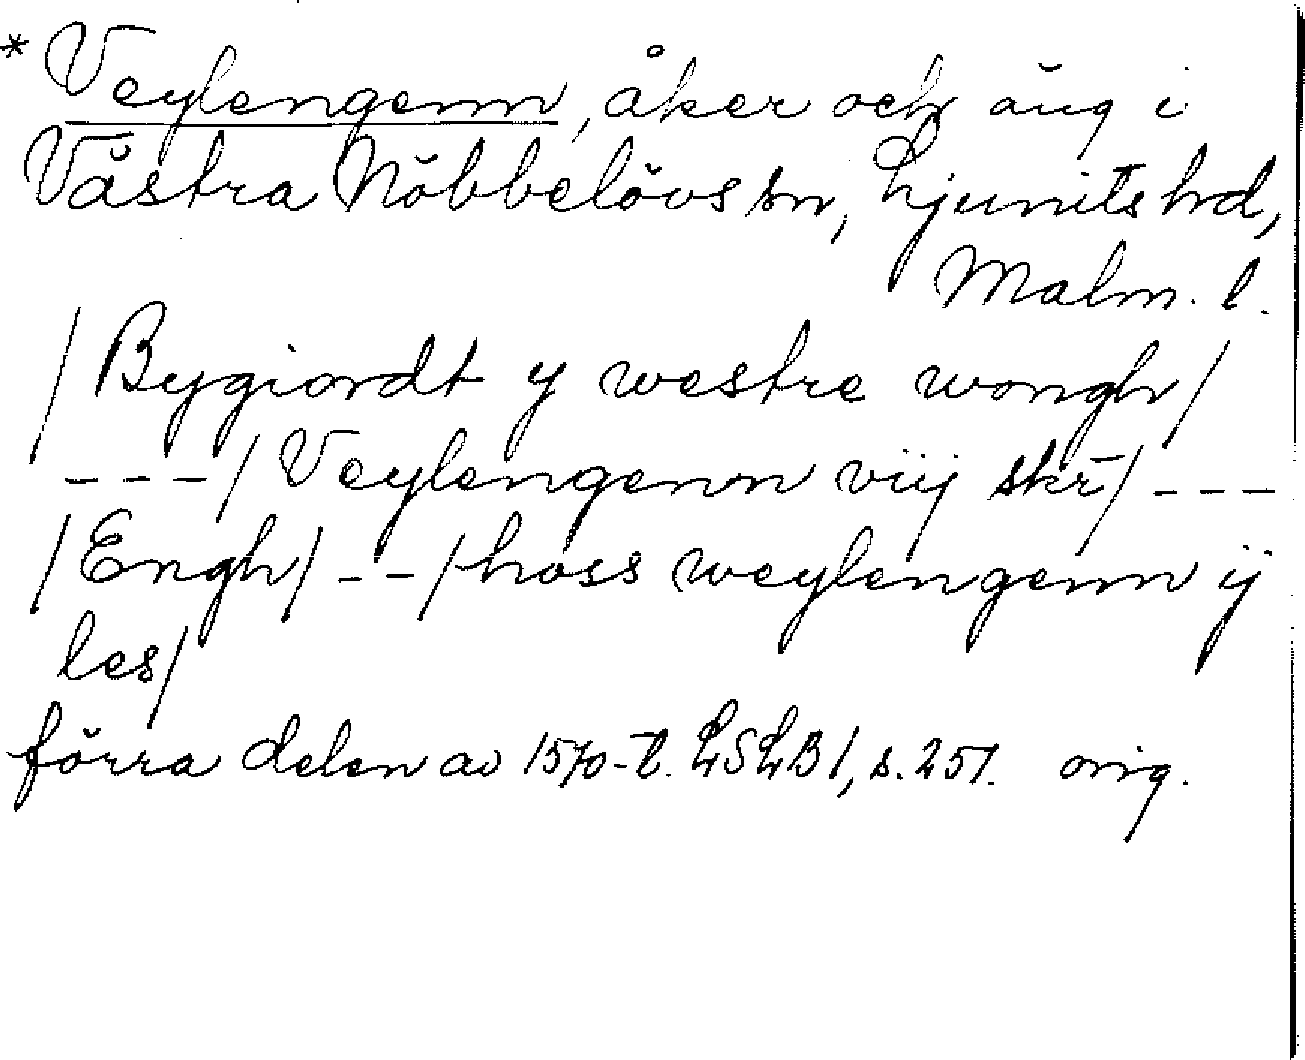 * Veylengenn, åker och äng i
Västra Nöbbelövs sn, Ljunits hd,
Malm. l.
/Bygiordt y westre wongh/
---/Veylengenn viij skr̄/---
/Engh/--/hoss weylengenn ij
les/
förra delen av 1570-t. LSLB1, s. 251. orig.